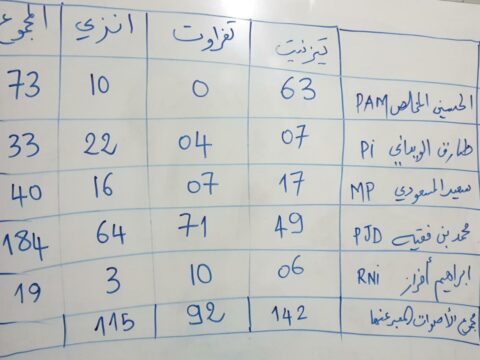 تيزنيت تفراوت انزي المجموع
الحسين المخلص PAM 63 0 10 73
طارق Pi 07 04 22 33
سعيد المسعودي MP 17 07 16 40
محمد بن فقيه PJD 49 71 64 184
ابراهيم أفزاز RNi 06 10 3 19
مجموع الأصوات المعبر عنها 142 92 115